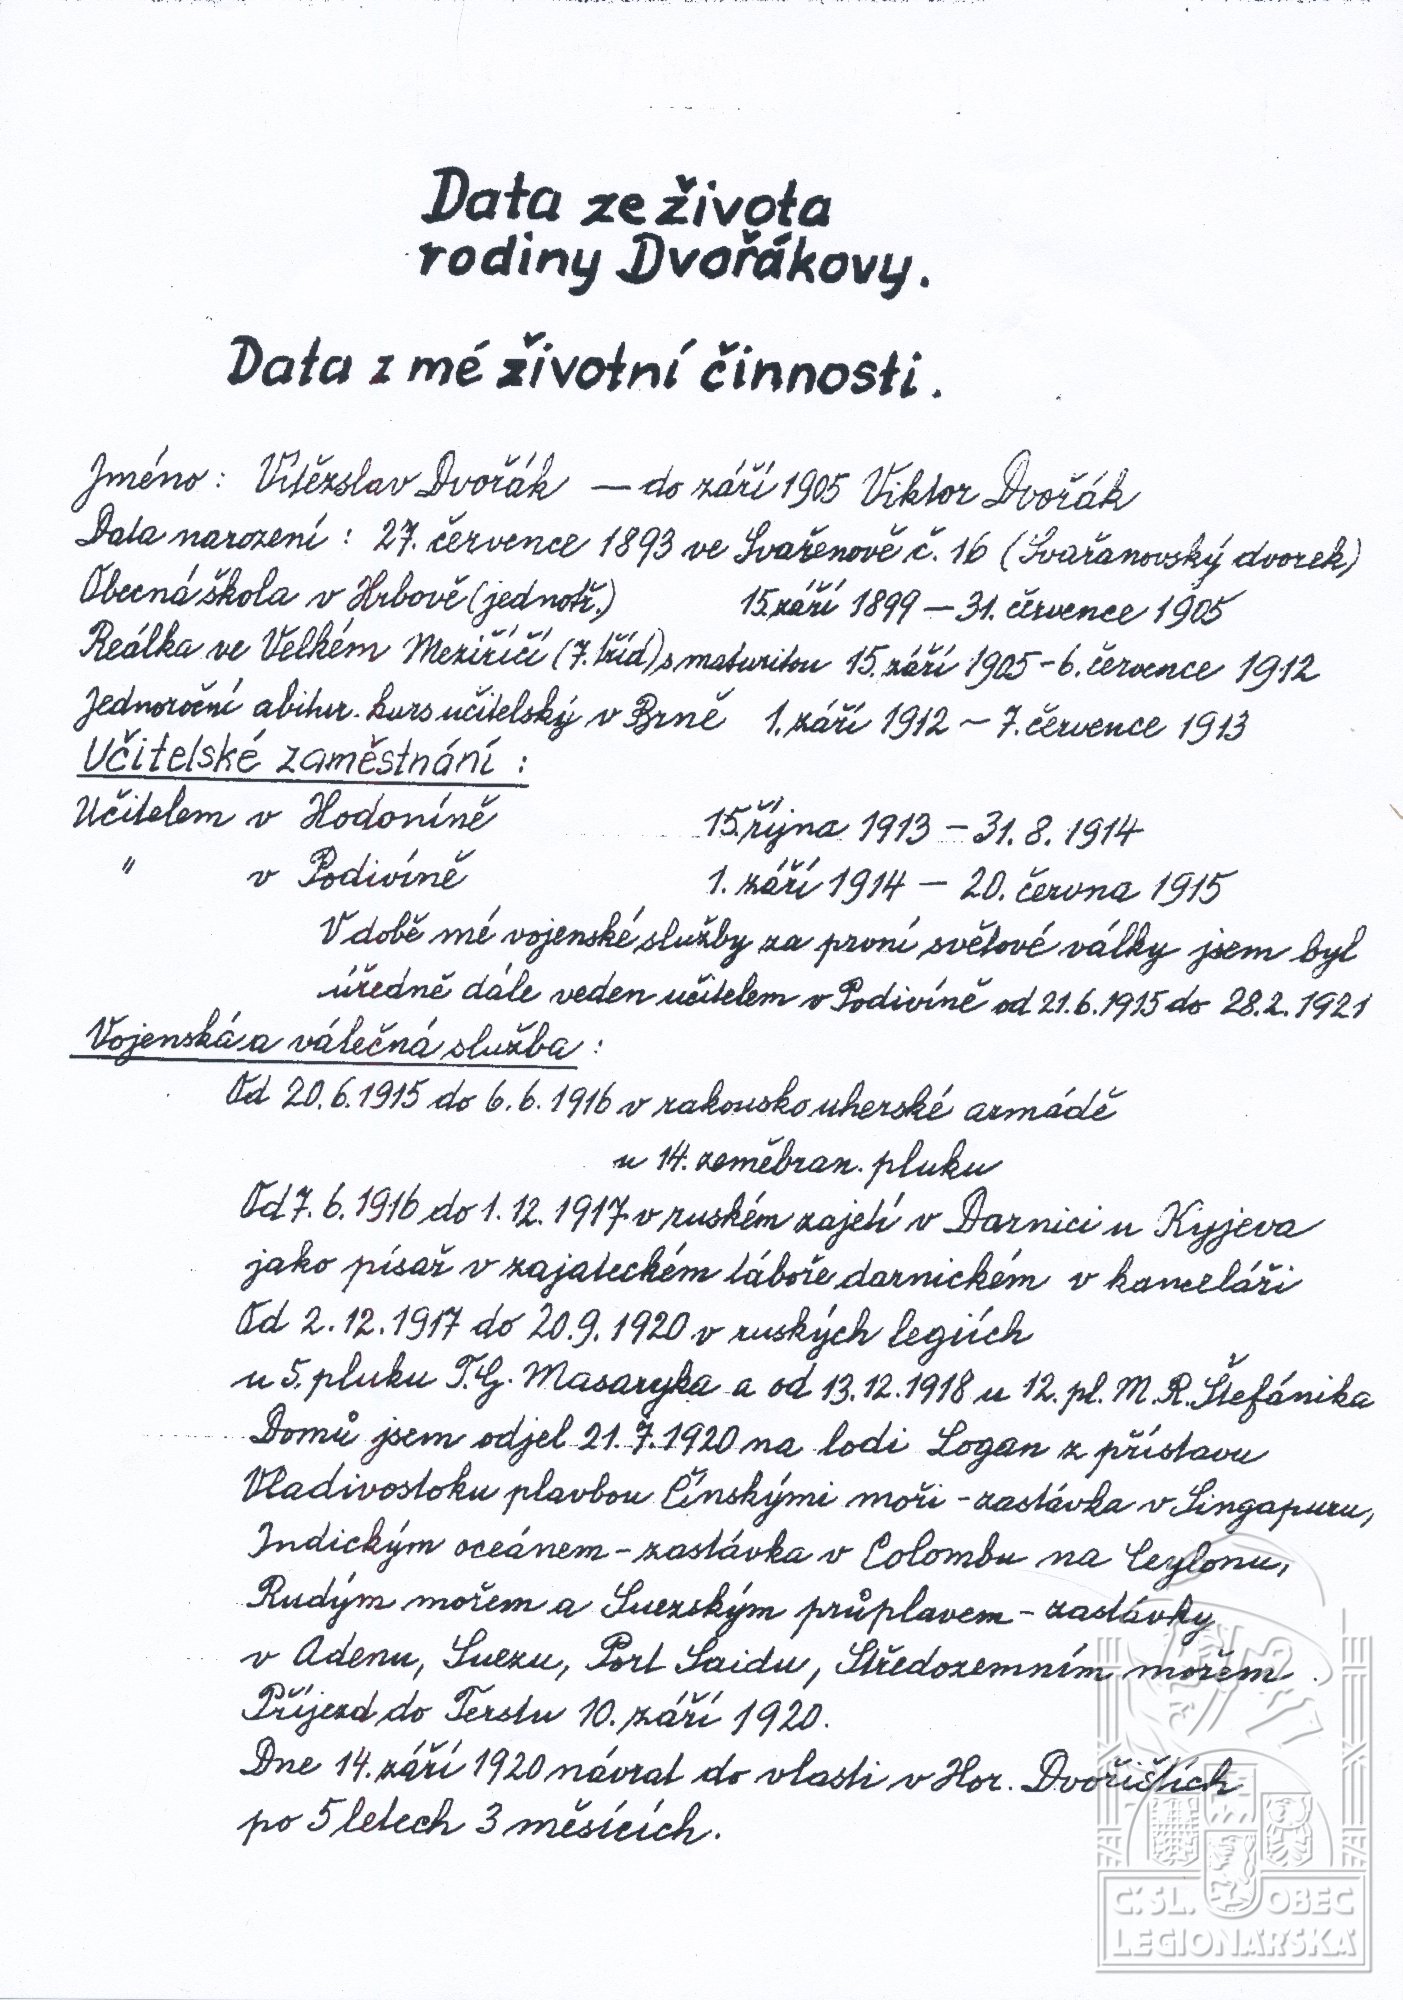 Data ze života
rodiny Dvořákovy.
Data z mé životní činnosti.
Jméno: Vítězslav Dvořák — do září 1905 Viktor Dvořák
Data narození: 27. července 1893 ve Svařenově č. 16 (Svařanovský dvorek)
Obecná škola v Hrbově (jednotř.) 15. září 1899 — 31. července 1905
Reálka ve Velkém Meziříčí (7. tříd) s maturitou 15. září 1905 - 6. července 1912
Jednoroční abitur. kurs učitelský v Brně 1. září 1912 - 7. července 1913
Učitelské zaměstnání:
Učitelem v Hodoníně 15. října 1913 - 31. 8. 1914
" v Podivíně 1. září 1914 - 20. června 1915
V době mé vojenské služby za první světové války jsem byl
úředně dále veden učitelem v Podivíně od 21.6.1915 do 28.2.1921
Vojenská a válečná služba:
Od 20.6.1915 do 6.6.1916 v rakousko uherské armádě
u 14. zeměbran. pluku
Od 7.6.1916 do 1.12.1917 v ruském zajetí v Darnici u Kyjeva
jako písař v zajateckém táboře darnickém v kanceláři
Od 2.12.1917 do 20.9.1920 v ruských legiích
u 5. pluku T.G. Masaryka a od 13.12.1918 u 12. pl. M.R. Štefánika
Domů jsem odjel 21.7.1920 na lodi Logan z přístavu
Vladivostoku plavbou Čínskými moři - zastávka v Singapuru,
Indickým oceánem - zastávka v Colombu na Ceylonu,
Rudým mořem a Suezským průplavem - zastávky
v Adenu, Suezu, Port Saidu, Středozemním mořem.
Příjezd do Terstu 10. září 1920.
Dne 14. září 1920 návrat do vlasti v Hor. Dvořištích
po 5 letech 3 měsících.
Č.SL. OBEC
LEGIONÁŘSKÁ